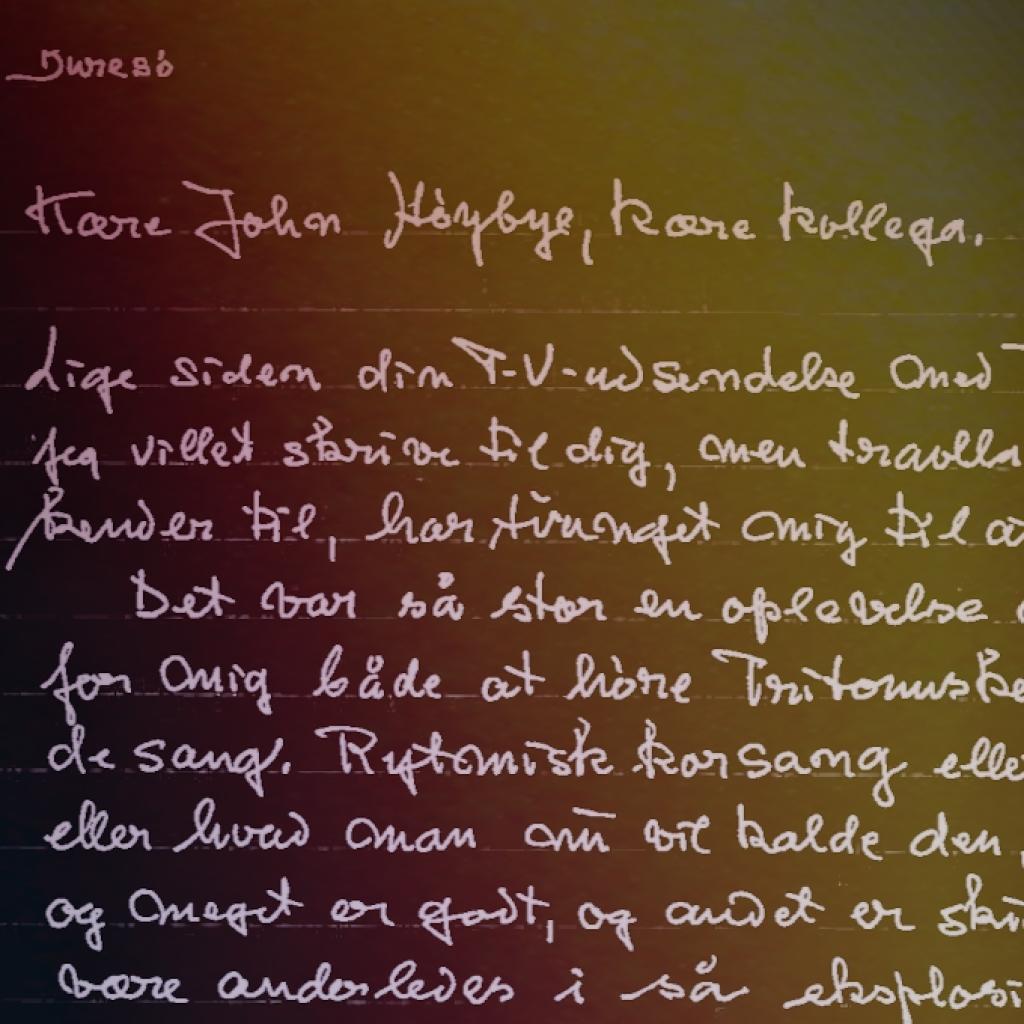 Furesö
Kære John Höybye, kære kollega.
Lige siden din T-V-udsendelse med
jeg villet skrive til dig, men travlh
kender til, har tvunget mig til a
Det var så stor en oplevelse
for mig både at höre Tritonuske
de sang. Rytmisk korsang elle
eller hvad man nu vil kalde den,
og meget er godt, og andet er ski
være anderledes i så eksplosi